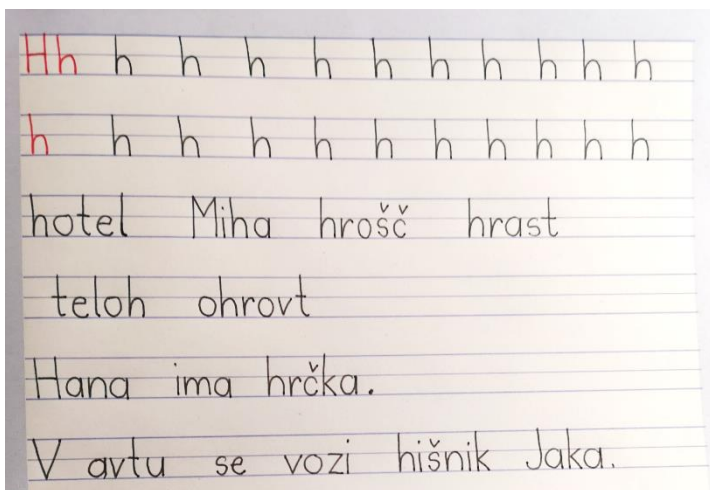 Hh h h h h h h h h h h
h h h h h h h h h h h
hotel Miha hrošč hrast
teloh ohrovt
Hana ima hrčka.
V avtu se vozi hišnik Jaka.